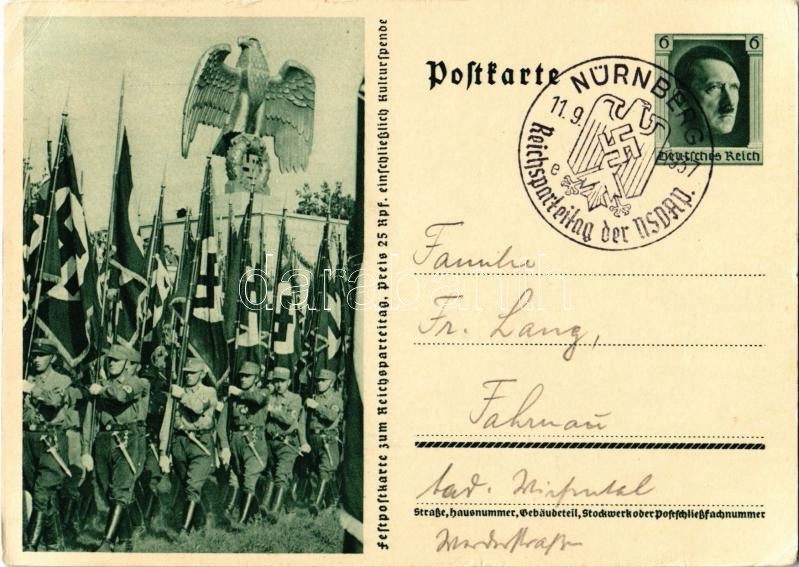 Festpostkarte zum Reichsparteitag, Preis 25 Rpf. einschließlich Kulturspende
Postkarte
6 6
Deutsches Reich
NÜRNBERG
11.9. 1937
e
Reichsparteitag der NSDAP.
darabanth
Familie
Fr. Lang,
Fahrnau
bad. Wiesental
Straße, Hausnummer, Gebäudeteil, Stockwerk oder Postschließfachnummer